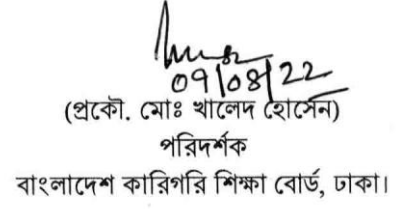 09/08/22
(প্রকৌ. মোঃ খালেদ হোসেন)
পরিদর্শক
বাংলাদেশ কারিগরি শিক্ষা বোর্ড, ঢাকা।